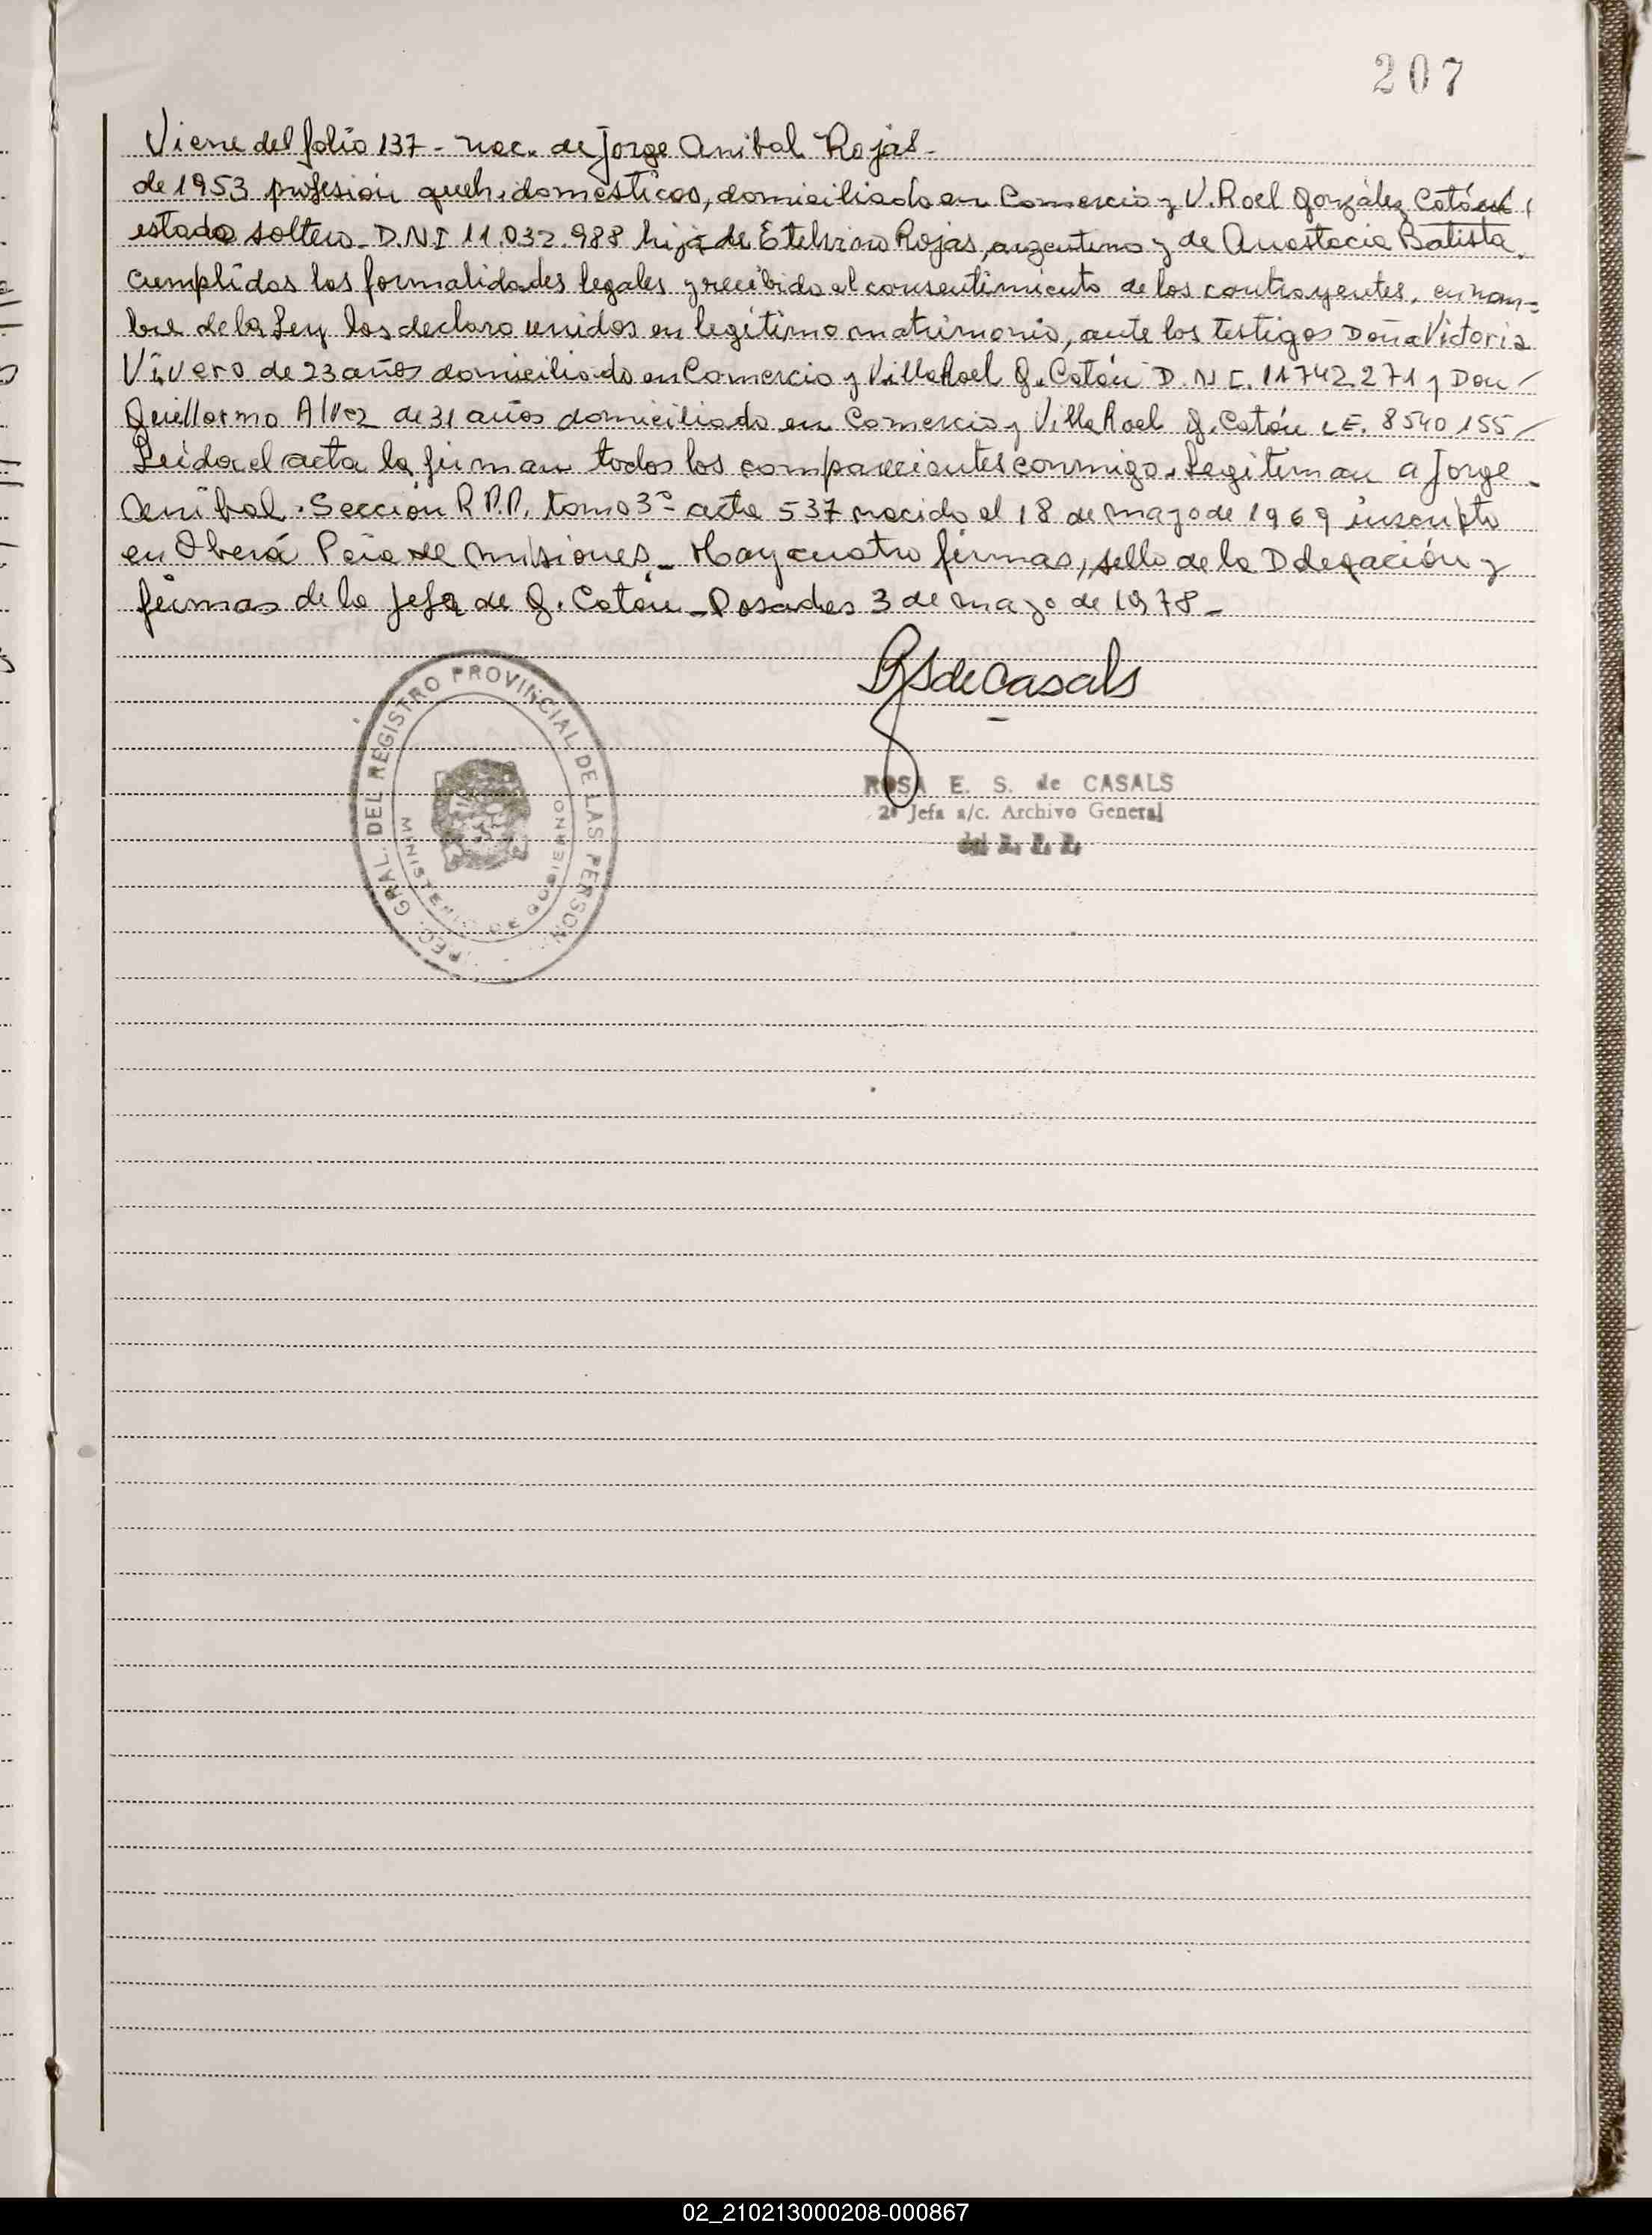 207
Viene del folio 137 - nac. de Jorge Anibal Rojas -
de 1953 profesión queh. domésticos, domiciliada en Comercio y V. Roel González Catán
estado soltera - D.N.I 11.032.988 hija de Etelvino Rojas, argentino y de Anastacia Batista.
Cumplidas las formalidades legales y recibido el consentimiento de los contrayentes, en nom-
bre de la Ley los declaro unidos en legítimo matrimonio, ante los testigos Doña Victoria
Vivero de 23 años domiciliado en Comercio y Villa Roel G. Catán D.N.I. 11742.271 y Don
Guillermo Alvez de 31 años domiciliado en Comercio y Villa Roel G. Catán L.E. 8540.155
Leída el acta la firman todos los comparecientes conmigo. Legitiman a Jorge
Anibal. Sección R.P.P. tomo 3º acta 537 nacido el 18 de mayo de 1969 inscripto
en Oberá Pcia de Misiones - Hay cuatro firmas, sello de la Delegación y
firmas de la Jefa de G. Catán - Posadas 3 de mayo de 1978 -
RSdeCasals
ROSA E. S. de CASALS
2ª Jefa a/c. Archivo General
del R. P. P.
GRAL. DEL REGISTRO PROVINCIAL DE LAS PERSON
MINISTERIO DE GOBIERNO
02_210213000208-000867